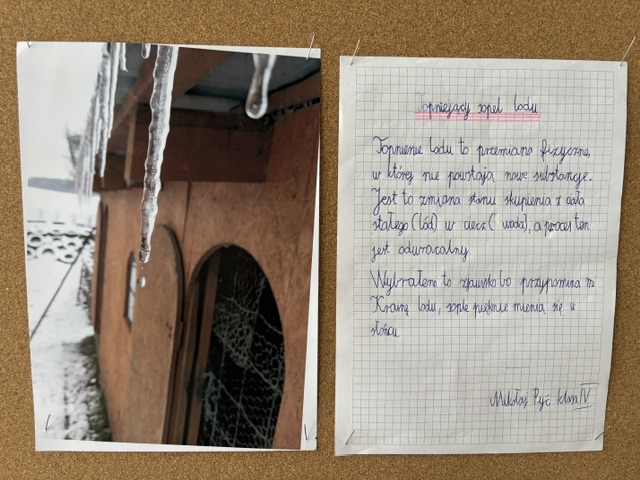 Topniejący sopel lodu
Topnienie lodu to przemiana fizyczna,
w której nie powstają nowe substancje.
Jest to zmiana stanu skupienia z ciała
stałego (lód) w ciecz (woda), a proces ten
jest odwracalny.
Wybrałem to zjawisko bo przypomina mi
Krainę lodu, sople pięknie mienią się w
słońcu.
Mikołaj klasa IV